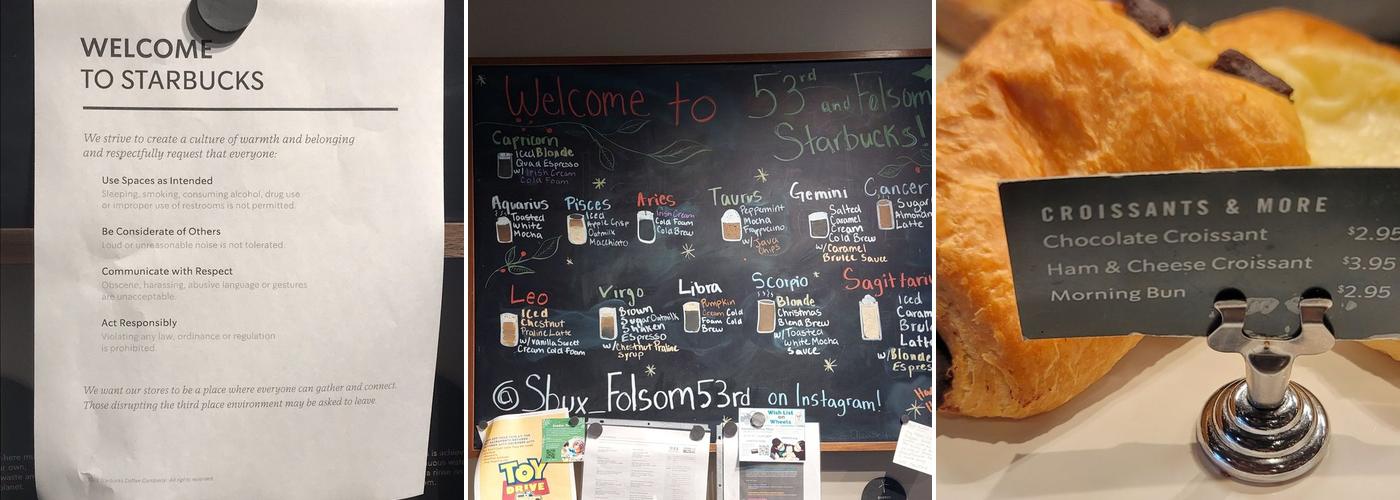 WELCOME
TO STARBUCKS
We strive to create a culture of warmth and belonging
and respectfully request that everyone:
Use Spaces as Intended
Sleeping, smoking, consuming alcohol, drug use
or improper use of restrooms is not permitted.
Be Considerate of Others
Loud or unreasonable noise is not tolerated.
Communicate with Respect
Obscene, harassing, abusive language or gestures
are unacceptable.
Act Responsibly
Violating any law, ordinance or regulation
is prohibited.
We want our stores to be a place where everyone can gather and connect.
Those disrupting the third place environment may be asked to leave.
Starbucks Coffee Company. All rights reserved.
Welcome to 53rd and Folsom
Starbucks!
Capricorn
Iced Blonde
Quad Espresso
w/ Irish Cream
Cold Foam
Aquarius
Toasted
White
Mocha
Pisces
Iced
Apple Crisp
Oatmilk
Macchiato
Aries
Irish Cream
Cold Foam
Cold Brew
Taurus
Peppermint
Mocha
Frappuccino
w/ Java
Chips
Gemini
Salted
Caramel
Cream
Cold Brew
w/ Caramel
Brulee Sauce
Cancer
Sugar
Almond
Latte
Leo
Iced
Chestnut
Praline Latte
w/ Vanilla Sweet
Cream Cold Foam
Virgo
Brown
Sugar Oatmilk
Shaken
Espresso
w/ Chestnut Praline
Syrup
Libra
Pumpkin
Cream Cold
Foam Cold
Brew
Scorpio
Blonde
Christmas
Blend Brew
w/ Toasted
White Mocha
Sauce
Sagittari
Iced
Caram
Brul
Latt
w/ Blonde
Espres
@Sbux_Folsom53rd on Instagram!
TOY
DRIVE
Wish List
on
Wheels
CROISSANTS & MORE
Chocolate Croissant $2.95
Ham & Cheese Croissant $3.95
Morning Bun $2.95